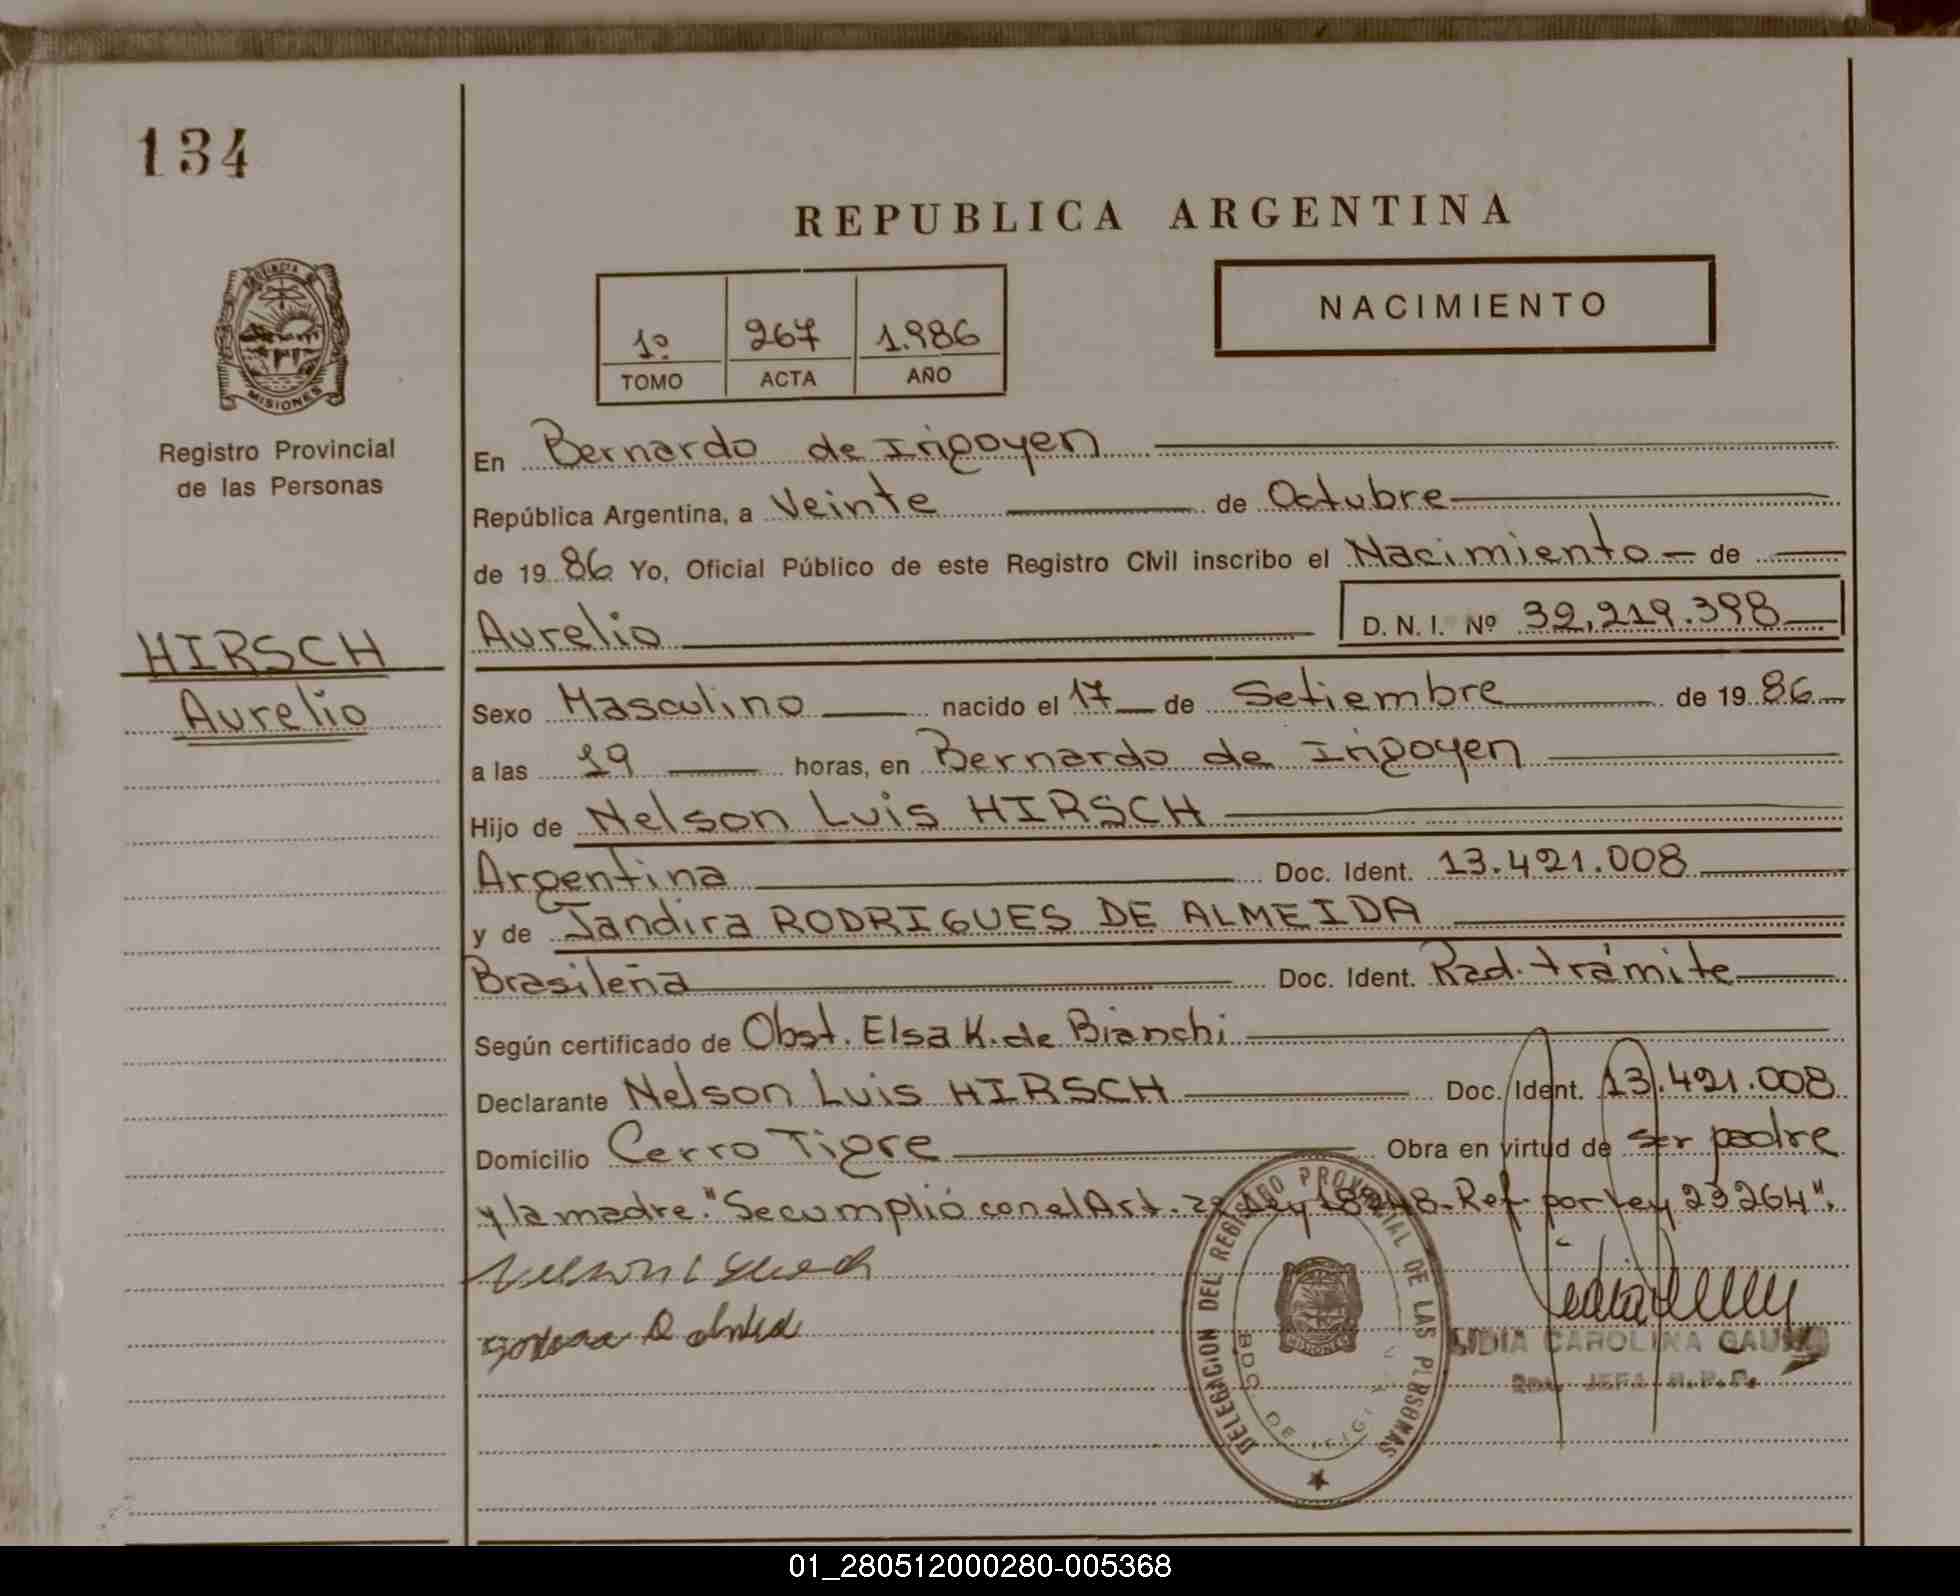 134
REPUBLICA ARGENTINA
NACIMIENTO
1º 267 1.986
TOMO ACTA AÑO
PROVINCIA DE
MISIONES
Registro Provincial
de las Personas
HIRSCH
Aurelio
En Bernardo de Irigoyen
República Argentina, a Veinte de Octubre
de 1986 Yo, Oficial Público de este Registro Civil inscribo el Nacimiento de
Aurelio D. N. I. Nº 32.219.398
Sexo Masculino nacido el 17 de Setiembre de 1986
a las 19 horas, en Bernardo de Irigoyen
Hijo de Nelson Luis HIRSCH
Argentina Doc. Ident. 13.421.008
y de Jandira RODRIGUES DE ALMEIDA
Brasileña Doc. Ident. Rad. trámite
Según certificado de Obst. Elsa K. de Bianchi
Declarante Nelson Luis HIRSCH Doc. Ident. 13.421.008
Domicilio Cerro Tigre Obra en virtud de ser padre
y la madre. "Se cumplió con el Art. 2º Ley 18248. Ref. por Ley 23264".
DELEGACION DEL REGISTRO PROVINCIAL DE LAS PERSONAS
BDO. DE IRIGOYEN
MISIONES
LIDIA CAROLINA
JEFA R.P.P.
01_280512000280-005368